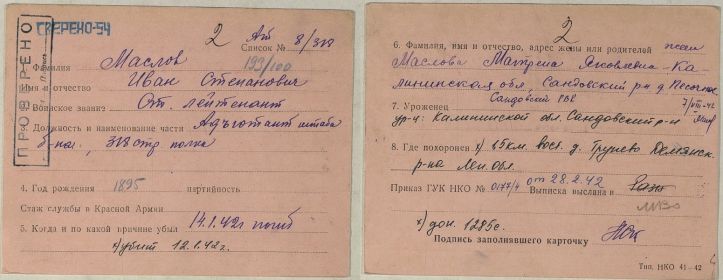 СВЕРЕНО-54
ПРОВЕРЕНО
2
Список № 8/318
193/100
1. Фамилия Маслов
Имя и отчество Иван Степанович
2. Воинское звание Ст. лейтенант
3. Должность и наименование части Адъютант штаба
б-на, 318 стр полка
4. Год рождения 1895 партийность
Стаж службы в Красной Армии
5. Когда и по какой причине убыл 14.1.42г погиб
х) убит 12.1.42г.
2
6. Фамилия, имя и отчество, адрес жены или родителей жена
Маслова Матрена Яковлевна - Ка-
лининская обл, Сандовский р-н д
Сандовский РВК
7/VIII-42
7. Уроженец
ур-ц: Калининской обл. Сандовский р-н
8. Где похоронен х) 1,5км. вост. д. Трушево Демянск.
р-на Лен. обл.
Приказ ГУК НКО № 0177/4 от 28.2.42 Выписка выслана в
МВО
х) дон. 1285с.
Подпись заполнявшего карточку
Тип. НКО 41—42